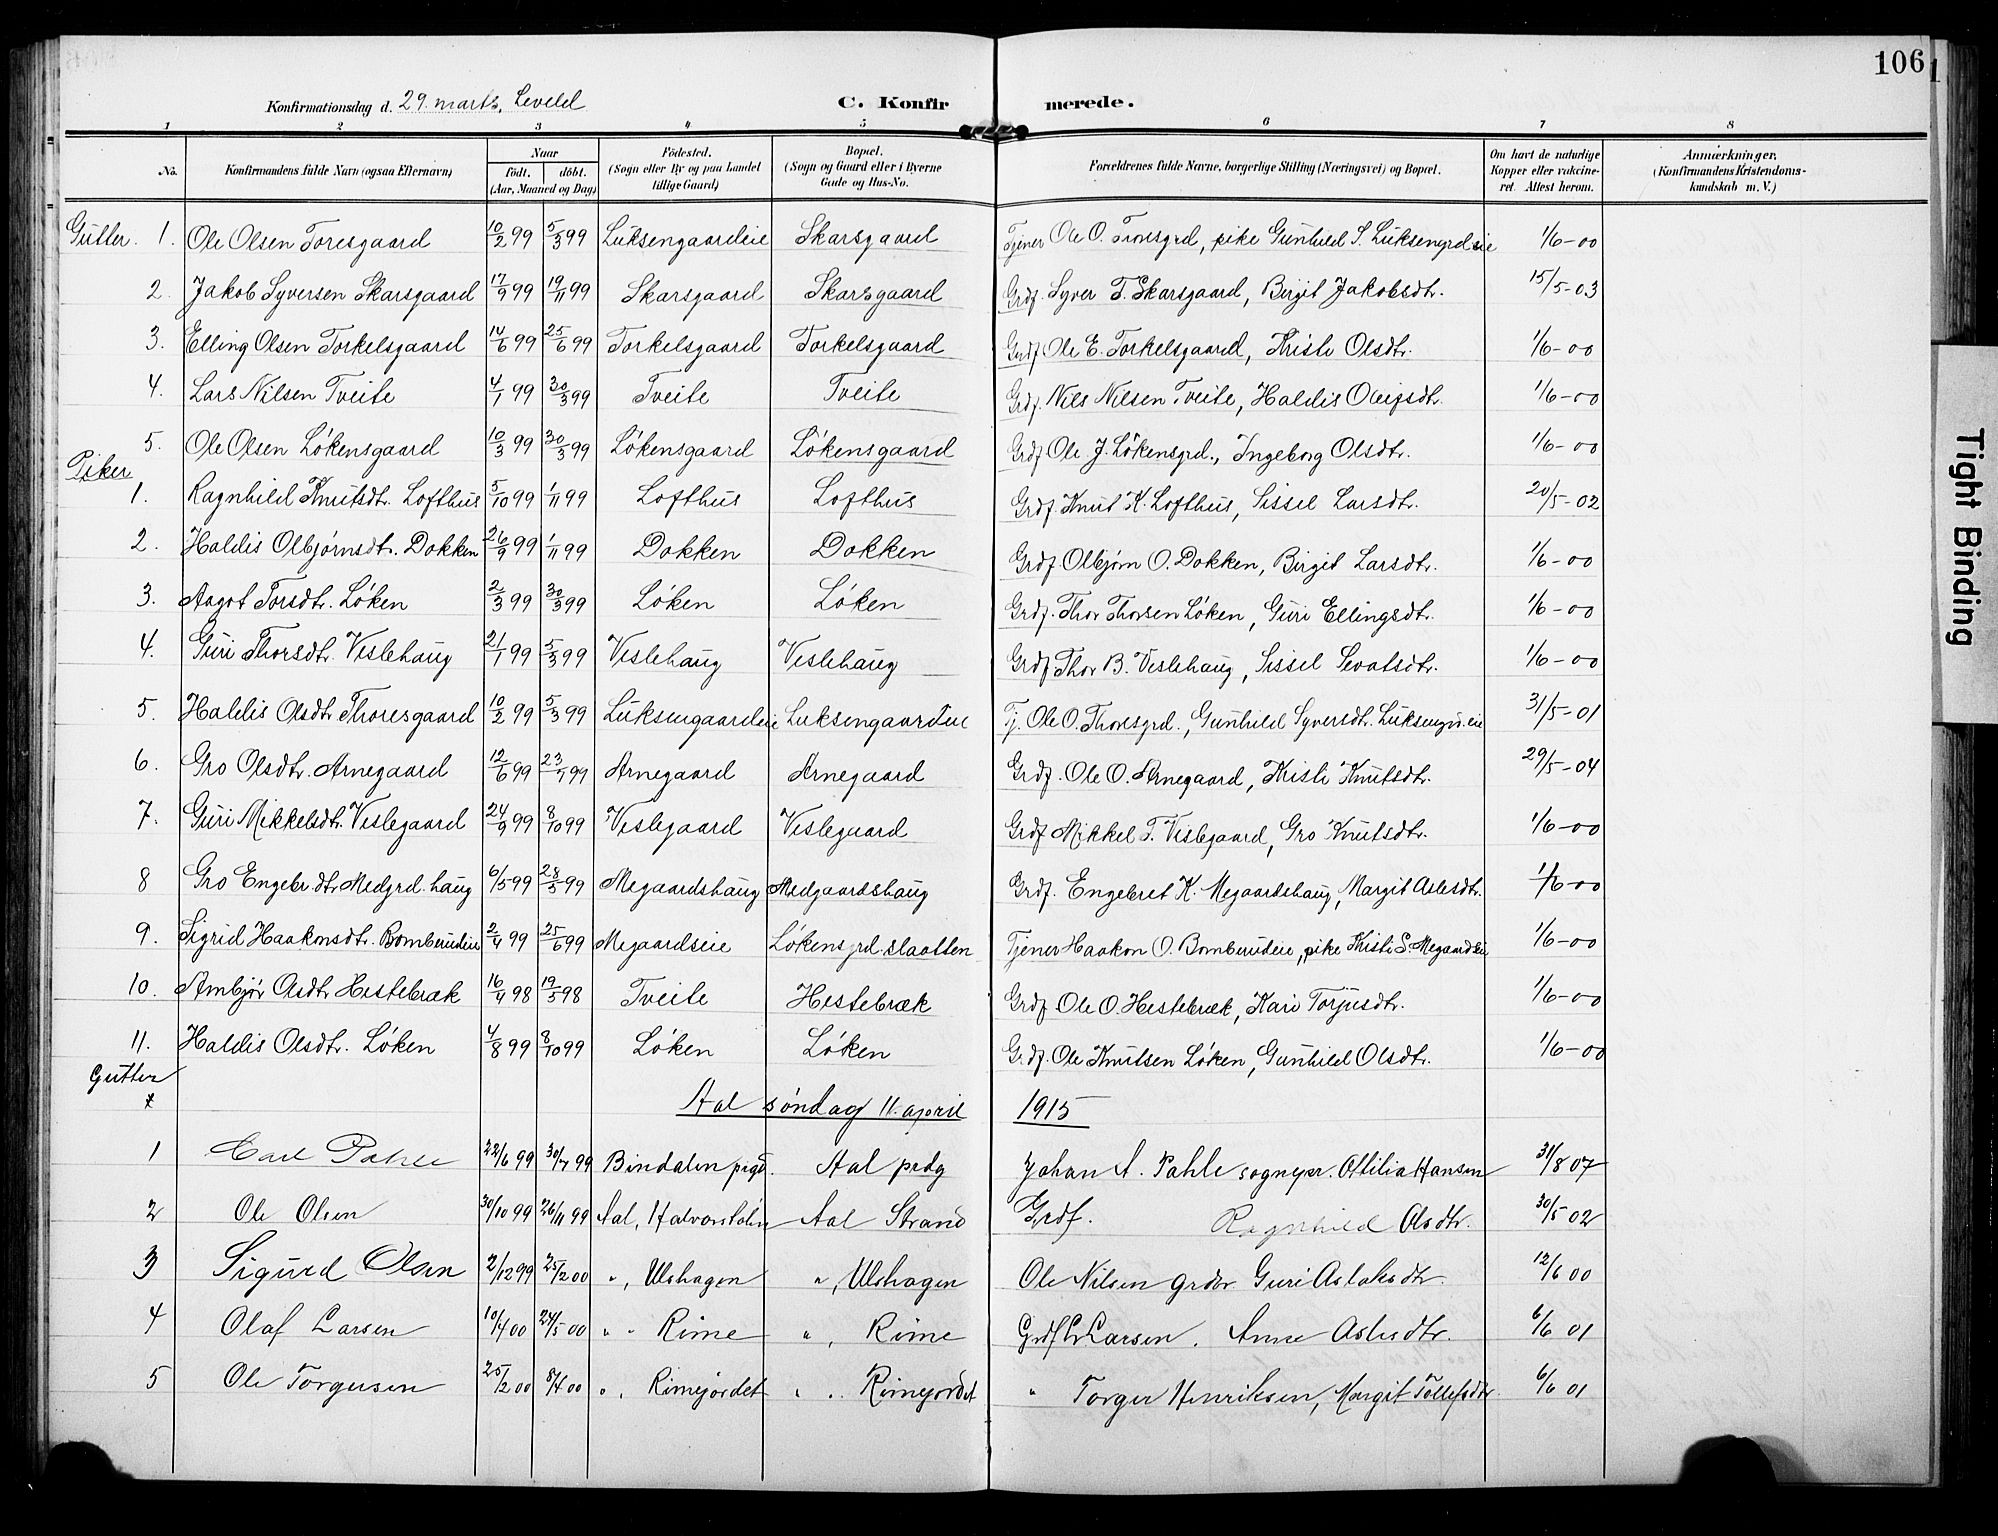 106
Konfirmationsdag d. 29. marts, Leveld C. Konfirmerede.
1 2 3 4 5 6 7 8
No. Konfirmandens fulde Navn (ogsaa Efternavn) Naar født. døbt. (Aar, Maaned og Dag) Fødested. (Sogn eller By og paa Landet tillige Gaard) Bopæl. (Sogn og Gaard eller i Byerne Gade og Hus-No. Forældrenes fulde Navne, borgerlige Stilling (Næringsvei) og Bopæl. Om havt de naturlige Kopper eller vakcineret. Attest herom. Anmærkninger. (Konfirmandens Kristendomskundskab m. V.)
Gutter. 1. Ole Olsen Toresgaard 10/2 99 5/3 99 Luksengaardeie Skarsgaard Tjener Ole O. Toresgrd, pike Gunhild S. Luksengrdeie 1/6-00
2. Jakob Syversen Skarsgaard 17/9 99 19/11 99 Skarsgaard Skarsgaard Grdf. Syver T. Skarsgaard, Birgit Jakobsdtr. 15/5-03
3. Elling Olsen Torkelsgaard 14/6 99 25/6 99 Torkelsgaard Torkelsgaard Grdf Ole E. Torkelsgaard, Kristi Olsdtr. 1/6-00
4. Lars Nilsen Tveite 4/1 99 30/3 99 Tveite Tveite Grdf. Nils Nilsen Tveite, Haldis 1/6-00
5. Ole Olsen Løkensgaard 10/3 99 30/3 99 Løkensgaard Løkensgaard Grdf Ole J. Løkensgrd., Ingeborg Olsdtr. 1/6-00
Piker
1. Ragnhild Knutsdtr. Lofthus 5/10 99 1/11 99 Lofthus Lofthus Grdf. Knut K. Lofthus, Sissel Larsdtr. 20/5-02
2. Haldis Olbjørnsdtr. Dokken 26/9 99 1/11 99 Dokken Dokken Grdf. Olbjørn O. Dokken, Birgit Larsdtr. 1/6-00
3. Aagot Torsdtr. Løken 2/3 99 30/3 99 Løken Løken Grdf. Thor Thorsen Løken, Guri Ellingsdtr. 1/6-00
4. Guri Thorsdtr. Veslehaug 21/1 99 5/3 99 Veslehaug Veslehaug Grdf Thor B. Veslehaug, Sissel Sevatsdtr. 1/6-00
5. Haldis Olsdtr Thoresgaard 10/2 99 5/3 99 Luksengaardeie Luksengaardeie Tj. Ole O. Thoresgrd., Gunhild Syversdtr. 31/5-01
6. Gro Olsdtr. Arnegaard 12/6 99 23/7 99 Arnegaard Arnegaard Grdf. Ole O. Arnegaard, Kristi Knutsdtr. 29/5-04
7. Guri Mikkelsdtr. Veslegaard 24/9 99 8/10 99 Veslegaard Veslegaard Grdf Mikkel T. Veslegaard, Gro Knutsdtr. 1/6-00
8 Gro Engebr.dtr Medgrd.haug 6/5 99 28/5 99 Megaardshaug Medgaardshaug Grdf. Engebret K. Megaardshaug, Margit Aslesdtr. 1/6-00
9. Sigrid Haakonsdtr. Bomberudeie 2/4 99 25/6 99 Megaardseie Løkensgrd.slaatten Tjener Haakon O. Bomberudeie, pike Kristi S. Megaardseie 1/6-00
10. Ambjør Olsdtr Hestebræk 16/4 98 19/5 98 Tveite Hestebræk Grdf Ole O. Hestebræk, Kari Torjusdtr. 1/6-00
11. Haldis Olsdtr. Løken 4/8 99 8/10 99 Løken Løken Grdf. Ole Knutsen Løken, Gunhild Olsdtr. 1/6-00
Gutter
Aal søndag 11. april 1915
1 Carl Pahle 22/6 99 30/7 99 Bindalen prgd. Aal prdg Johan A. Pahle sognepr. Ottilia Hansen 31/8 07
2 Ole Olsen 30/10 99 26/11 99 Aal, Aal Strand Grdf. Ragnhild Olsdtr. 30/5 02
3 Sigurd Olsen 2/12 99 25/2 00 ", Ulshagen ", Ulshagen Ole Nilsen grdbr. Guri Aslaksdtr. 12/6 00
4 Olaf Larsen 10/4 00 24/5 00 " " Rime ", Rime Grdf L. Larsen. Anne Aslesdtr. 6/6 01
5 Ole Torgersen 25/2 00 8/4 00 ", Rimejordet " " Rimejordet " Torger Henriksen, Margit Tollefsdtr. 6/6 01
Tight Binding